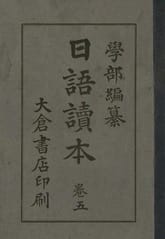 學部編纂
日語讀本
卷五
大倉書店印刷